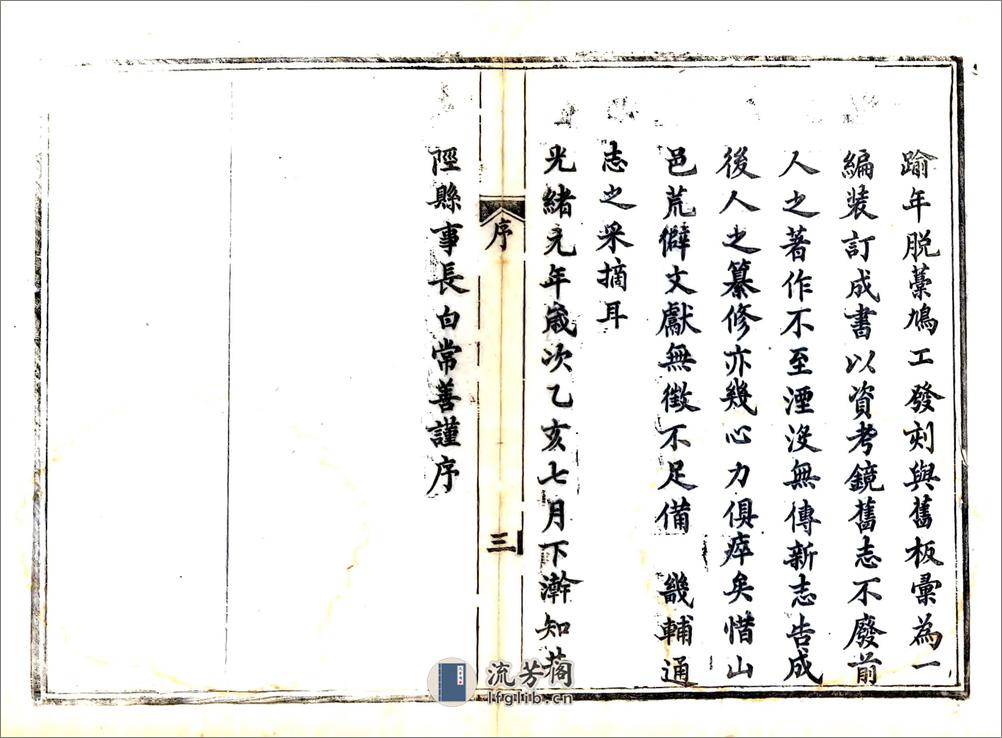 踰年脱藁鳩工發刻與舊板彙為一
編裝訂成書以資考鏡舊志不廢前
人之著作不至湮没無傳新志告成
後人之纂修亦幾心力俱瘁矣惜山
邑荒僻文獻無徵不足備 畿輔通
志之采摘耳
光緒元年歲次乙亥七月下澣知井
序
三
陘縣事長白常善謹序
流芳閣
lfglib.cn